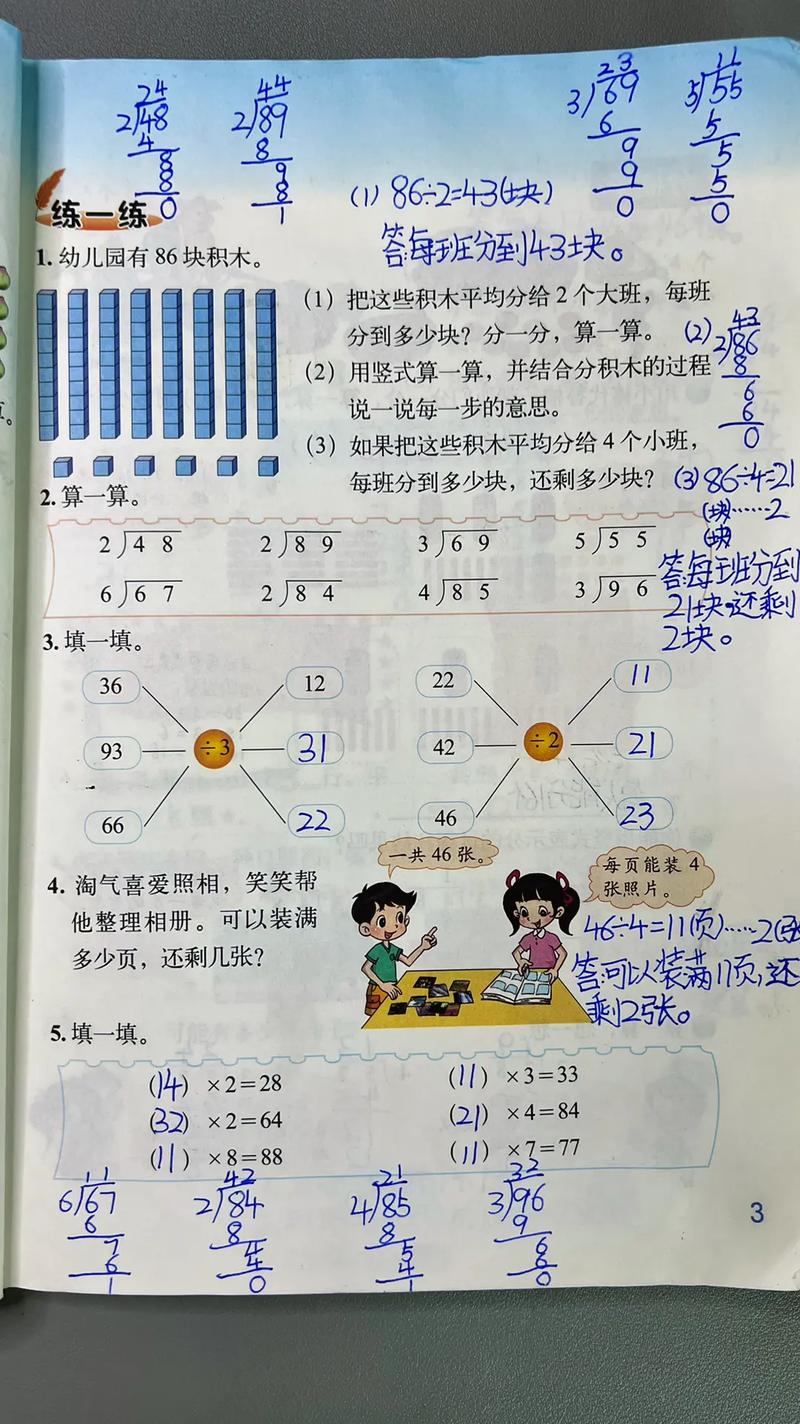 24
2)48
4
8
8
0
44
2)89
8
9
8
1
23
3)69
6
9
9
0
11
5)55
5
5
5
0
练一练
(1) 86÷2=43(块)
答:每班分到43块。
1. 幼儿园有 86 块积木。
(1) 把这些积木平均分给 2 个大班，每班
分到多少块？分一分，算一算。
(2) 用竖式算一算，并结合分积木的过程
说一说每一步的意思。
(3) 如果把这些积木平均分给 4 个小班，
每班分到多少块，还剩多少块？
(2)
43
2)86
8
6
6
0
(3) 86÷4=21
(块)……2
(块)
答:每班分到
21块,还剩
2块。
2. 算一算。
2)4 8 2)8 9 3)6 9 5)5 5
6)6 7 2)8 4 4)8 5 3)9 6
3. 填一填。
36 12 22 11
93 ÷3 31 42 ÷2 21
66 22 46 23
4. 淘气喜爱照相，笑笑帮
他整理相册。可以装满
多少页，还剩几张？
一共 46 张。
每页能装 4
张照片。
46÷4=11(页)……2(张
答:可以装满11页,还
剩2张。
5. 填一填。
(14) ×2=28 (11) ×3=33
(32) ×2=64 (21) ×4=84
(11) ×8=88 (11) ×7=77
11
6)67
6
7
6
1
42
2)84
8
4
4
0
21
4)85
8
5
4
1
32
3)96
9
6
6
0
3